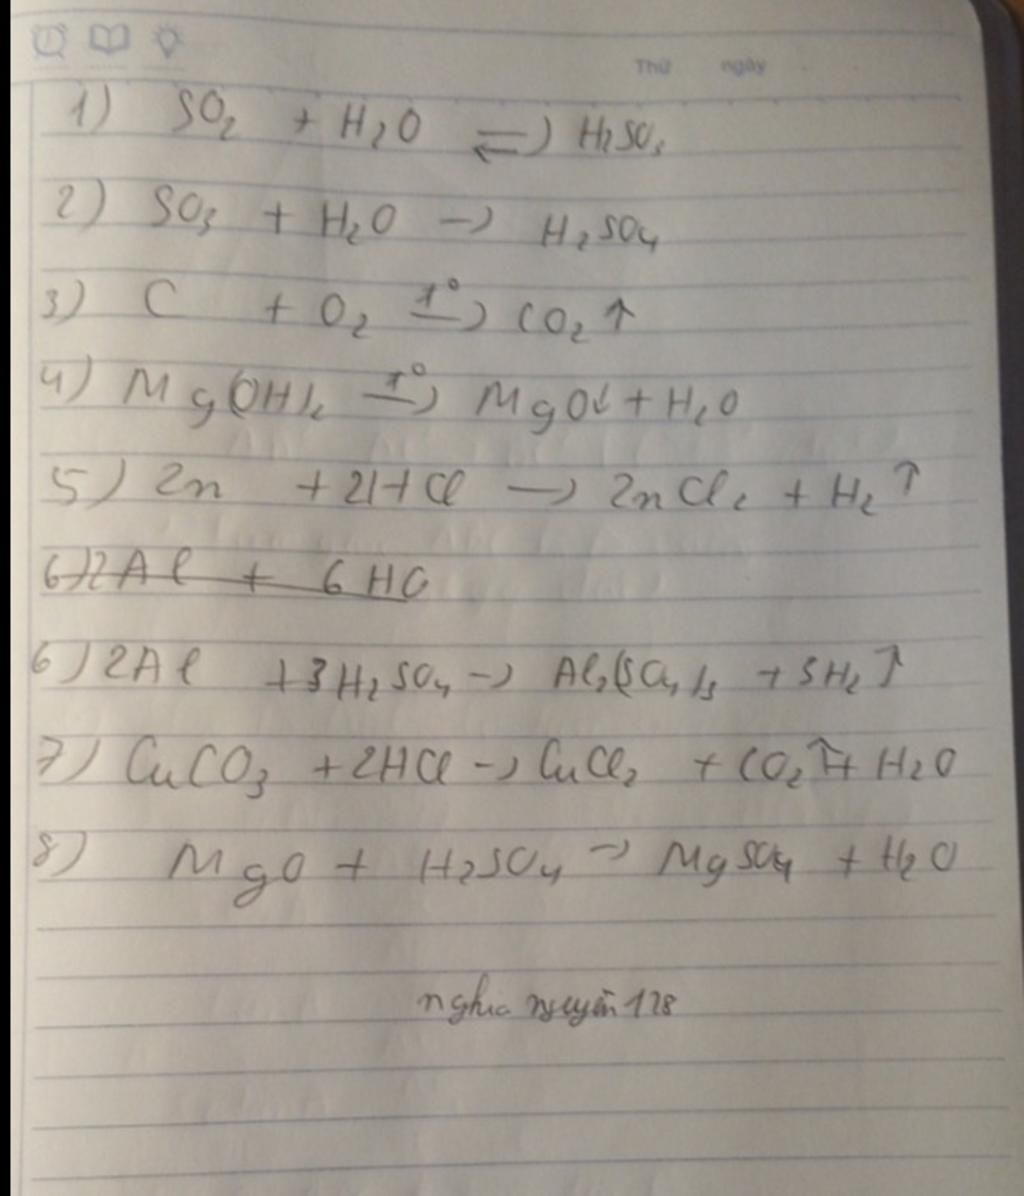 Thứ ngày
1) SO₂ + H₂O ⇌ H₂SO₃
2) SO₃ + H₂O → H₂SO₄
3) C + O₂ t°→ CO₂ ↑
4) Mg(OH)₂ t°→ MgO↓ + H₂O
5) Zn + 2HCl → ZnCl₂ + H₂ ↑
6) 2Al + 6HCl
6) 2Al + 3H₂SO₄ → Al₂(SO₄)₃ + 3H₂ ↑
7) CuCO₃ + 2HCl → CuCl₂ + CO₂↑ + H₂O
8) MgO + H₂SO₄ → MgSO₄ + H₂O
nghia nguyên 128